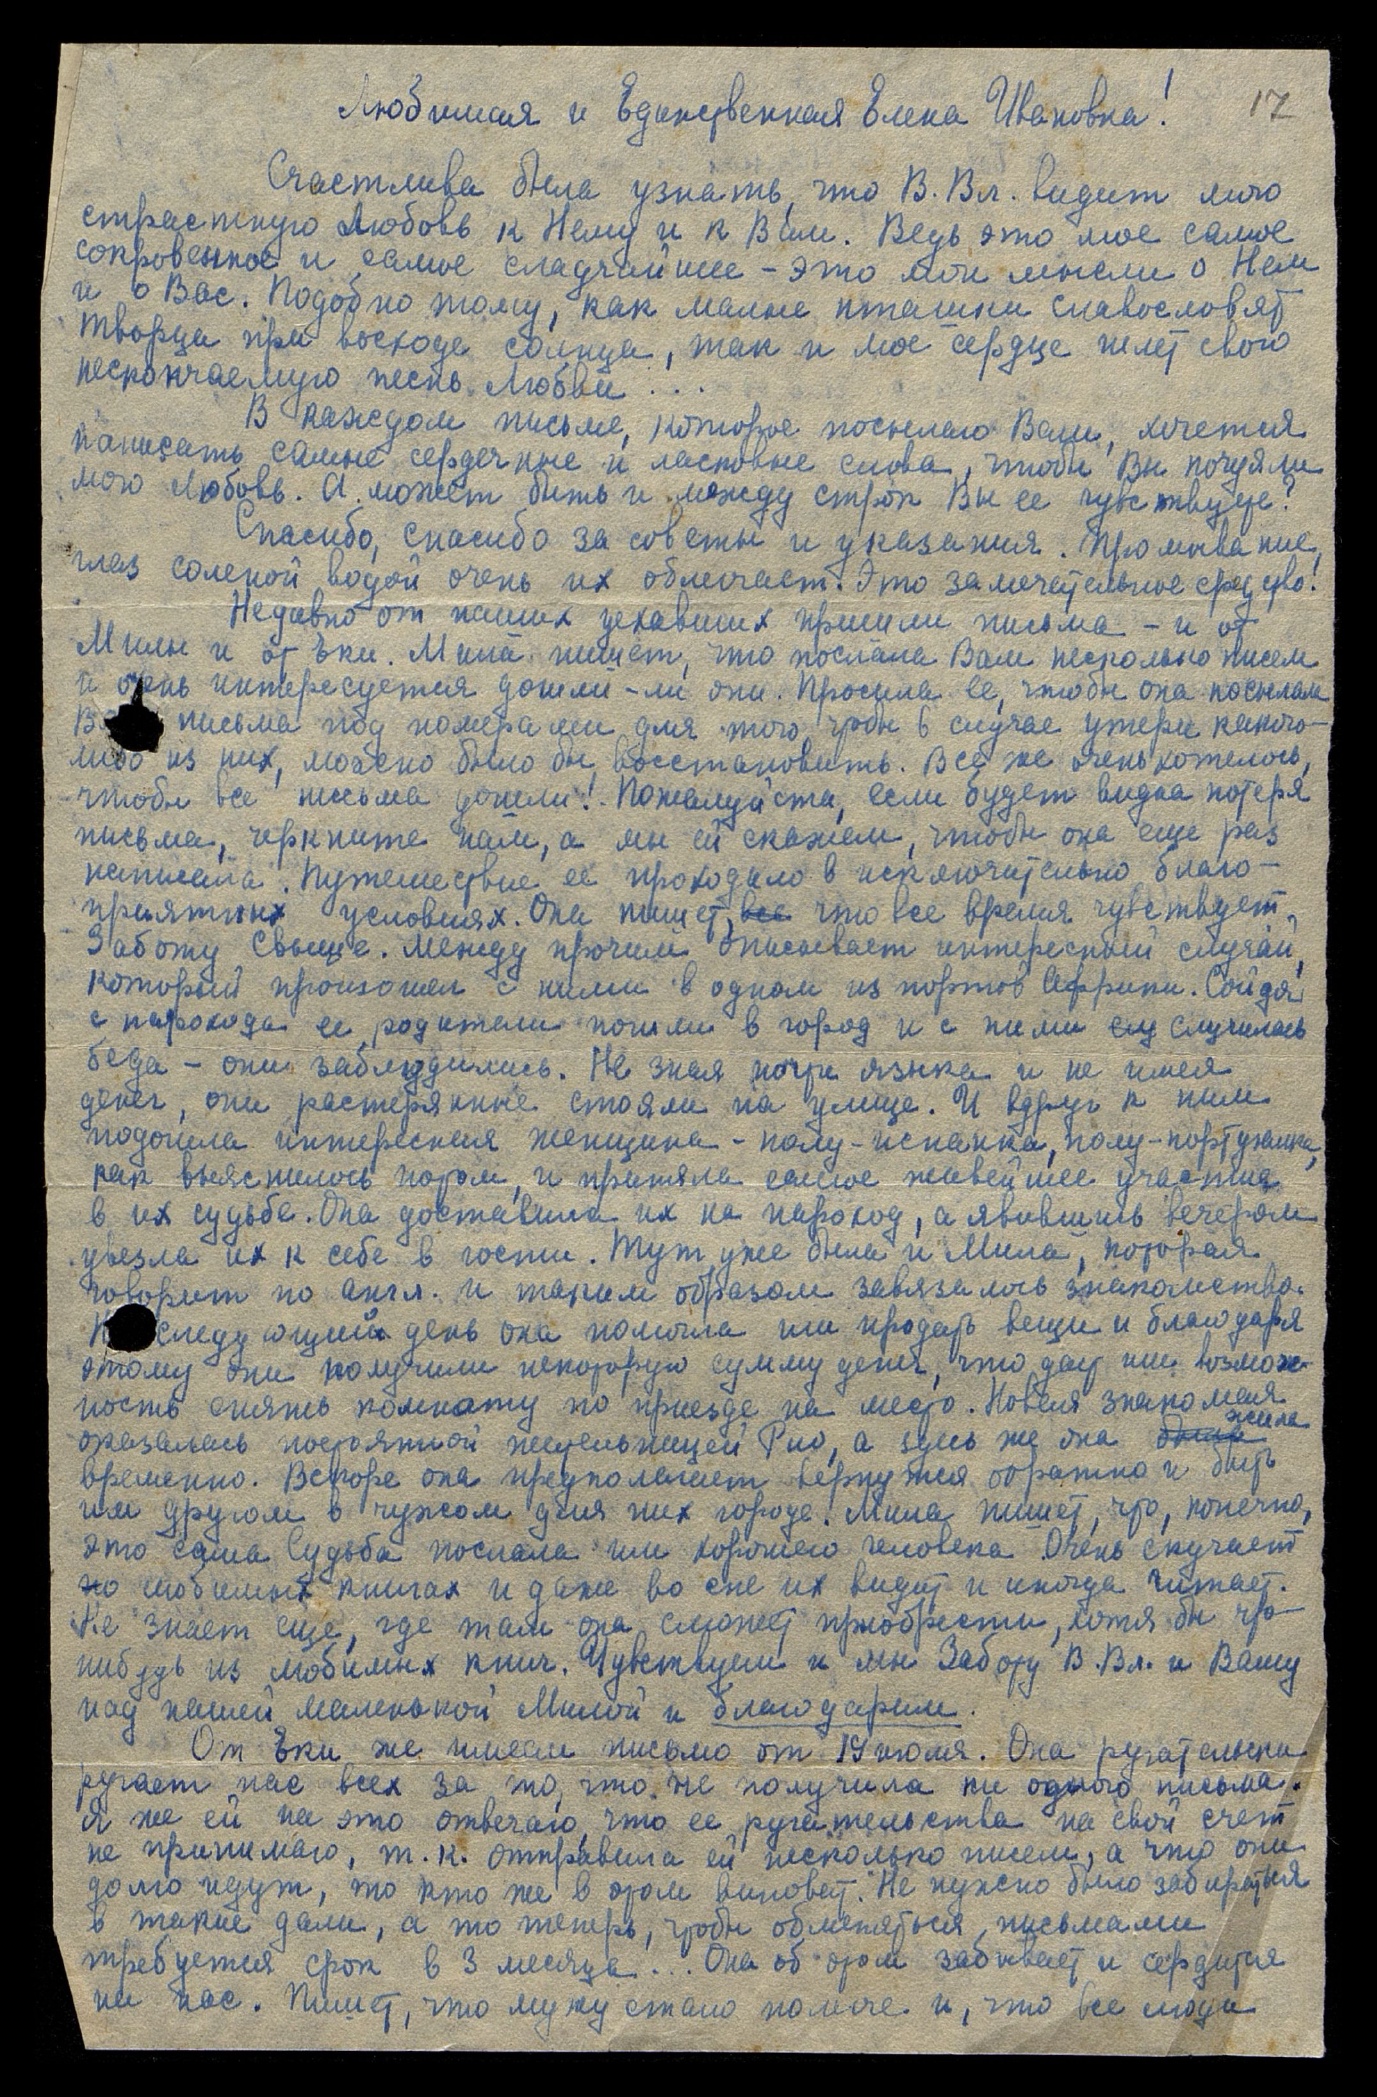 Любимая и Единственная Елена Ивановна!
17
Счастлива была узнать, что В.Вл. видит мою
страстную Любовь к Нему и к Вам. Ведь это мое самое
сокровенное и самое сладчайшее - это мои мысли о Нем
и о Вас. Подобно тому, как малые пташки славословят
Творца при восходе солнца, так и мое сердце шлет свою
нескончаемую песнь Любви ...
В каждом письме, которое посылаю Вам, хочется
написать самые сердечные и ласковые слова, чтобы Вы почуяли
мою Любовь. А может быть и между строк Вы ее чувствуете?
Спасибо, спасибо за советы и указания. Промывание
глаз соленой водой очень их облегчает. Это замечательное средство!
Недавно от наших уехавших пришли письма - и от
Милы и от Еки. Мила пишет, что послала Вам несколько писем
и очень интересуется дошли-ли они. Просила ее, чтобы она посылала
В письма под номерами для того, чтобы в случае утери какого-
либо из них, можно было бы восстановить. Все же очень хотелось,
чтобы все письма дошли! Пожалуйста, если будет видна потеря
письма, черкните нам, а мы ей скажем, чтобы она еще раз
написала. Путешествие ее проходило в исключительно благо-
приятных условиях. Она пишет, все что все время чувствует
Заботу Свыше. Между прочим описывает интересный случай,
который произошел с ними в одном из портов Африки. Сойдя
с парохода ее родители пошли в город и с ними случилась
беда - они заблудились. Не зная языка и не имея
денег, они растерянные стояли на улице. И вдруг к ним
подошла интересная женщина - полу-испанка, полу-португалка,
как выяснилось потом, и приняла самое живейшее участие
в их судьбе. Она доставила их на пароход, а явившись вечером
увезла их к себе в гости. Тут уже была и Мила, которая
говорит по англ. и таким образом завязалось знакомство.
Н следующий день она помогла им продать вещи и благодаря
этому они получили некоторую сумму денег, что даст им возмож-
ность снять комнату по приезде на место. Новая знакомая
оказалась постоянной жительницей Рио, а здесь же она была жила
временно. Вскоре она предполагает вернуться обратно и быть
им другом в чужом для них городе. Мила пишет, что, конечно,
это сама Судьба послала им хорошего человека. Очень скучает
по любимых книгах и даже во сне их видит и иногда читает.
Не знает еще, где там она сможет приобрести, хотя бы что-
нибудь из любимых книг. Чувствуем и мы Заботу В.Вл. и Вашу
над нашей маленькой Милой и благодарим.
От Еки же имеем письмо от 19 июля. Она ругательски
ругает нас всех за то, что не получила ни одного письма.
Я же ей на это отвечаю, что ее ругательства на свой счет
не принимаю, т.к. отправила ей несколько писем, а что они
долго идут, то кто же в этом виноват. Не нужно было забираться
в такие дали, а то теперь, чтобы обменяться письмами
требуется срок в 3 месяца ... Она об этом забывает и сердится
на нас. Пишет, что мужу стало полегче и, что все люди